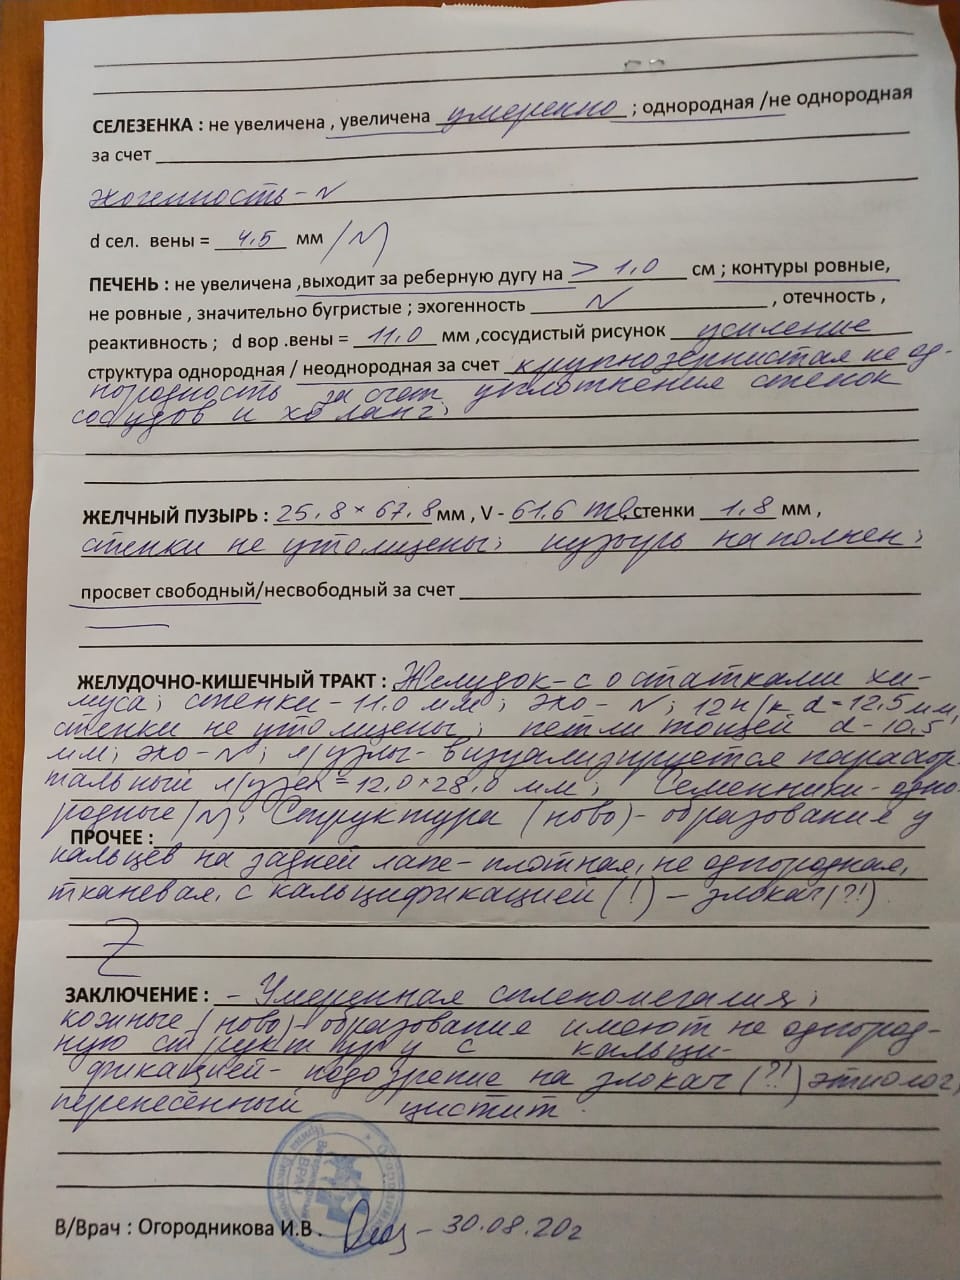 СЕЛЕЗЕНКА : не увеличена , увеличена умеренно ; однородная /не однородная
за счет
эхогенность - N
d сел. вены = 4.5 мм /N/
ПЕЧЕНЬ : не увеличена ,выходит за реберную дугу на > 1,0 см ; контуры ровные,
не ровные , значительно бугристые ; эхогенность N , отечность ,
реактивность ; d вор .вены = 11,0 мм ,сосудистый рисунок усиление
структура однородная / неоднородная за счет крупнозернистая не од-
нородность за счет уплотнения стенок
сосудов и холанг;
ЖЕЛЧНЫЙ ПУЗЫРЬ : 25.8 × 67.8 мм , V - 61.6 ml, стенки 1.8 мм ,
стенки не утолщены; пузырь наполнен;
просвет свободный/несвободный за счет
ЖЕЛУДОЧНО-КИШЕЧНЫЙ ТРАКТ : Желудок - с остатками хи-
муса; стенки - 11.0 мм; эхо - N; 12п/к d = 12,5 мм,
стенки не утолщены; петли тощей d - 10,5
мм; эхо - N; л/узлы - визуализируется парааор-
тальный л/узел = 12,0 × 28,0 мм; Семенники - одно-
родные /N/. Структура (ново)-образования у
ПРОЧЕЕ :
пальцев на задней лапе - плотная, не однородная,
тканевая, с кальцификацией (!) – злокач (?!)
Z
ЗАКЛЮЧЕНИЕ : - Умеренная спленомегалия;
кожные (ново)-образование имеют не однород-
ную структуру с кальци-
фикацией - подозрение на злокач (?!) этиолог,
перенесённый цистит.
ВРАЧ
В/Врач : Огородникова И.В . - 30.08.20г